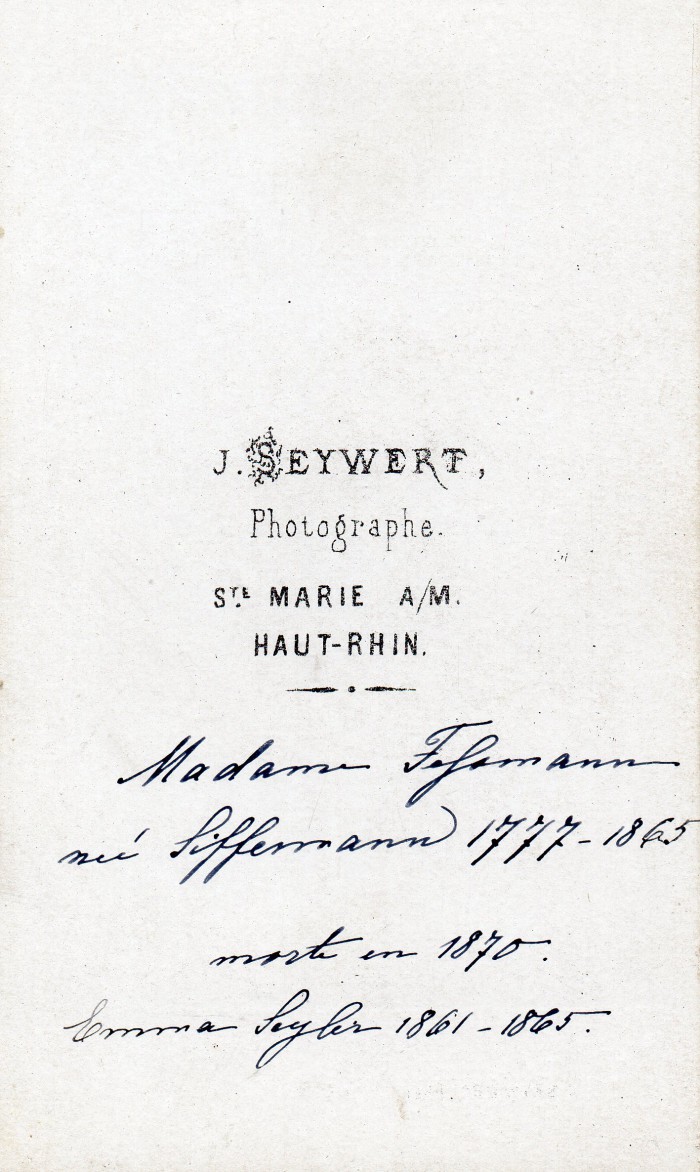 J. SEYWERT,
Photographe.
STE MARIE A/M.
HAUT-RHIN.
Madame
neé Siffermann 1777-1865
morte en 1870.
Emma Seyler 1861-1865.